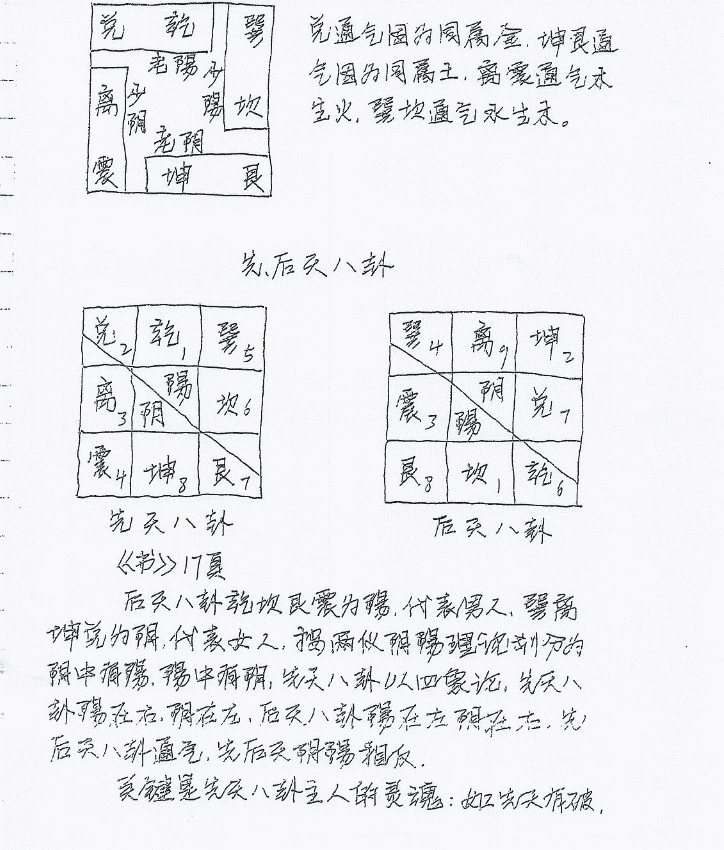 兑 乾 巽
老陽 少陽
离 少阴 坎
老阴
震 坤 艮
兑通气因为同属金,坤艮通
气因为同属土,离震通气木
生火,巽坎通气水生木。
先、后天八卦
兑2 乾1 巽5
离3 阴 陽 坎6
震4 坤8 艮7
先天八卦
《书》17頁
巽4 离9 坤2
震3 陽 阴 兑7
艮8 坎1 乾6
后天八卦
后天八卦乾坎艮震为陽,代表男人,巽离
坤兑为阴,代表女人,按两仪阴陽理论划分的
阴中有陽,陽中有阴,先天八卦以四象论,先天八
卦陽在右,阴在左,后天八卦陽在左阴在右,先
后天八卦通气,先后天阴陽相反.
关键是先天八卦主人的灵魂:如先天有破,